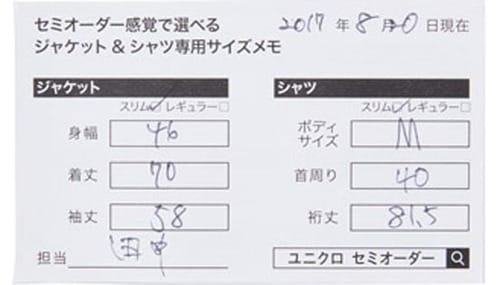 セミオーダー感覚で選べる
ジャケット & シャツ専用サイズメモ
2017 年 8月20日現在
ジャケット
スリム☑レギュラー□
身幅 46
着丈 70
袖丈 58
担当 田中
シャツ
スリム☑レギュラー□
ボディ
サイズ M
首周り 40
裄丈 81.5
ユニクロ セミオーダー